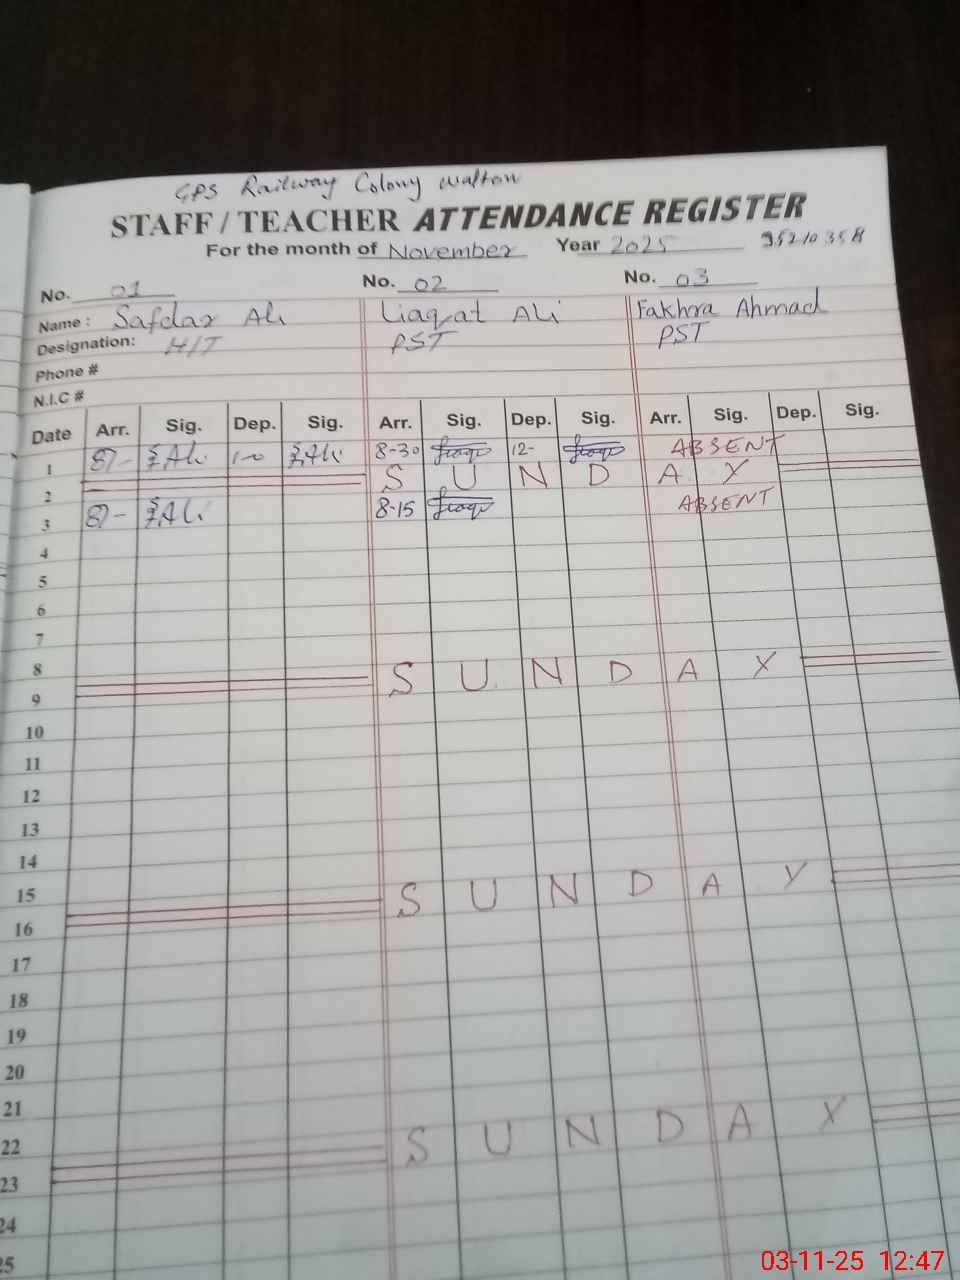 GPS Railway Colony Walton
STAFF / TEACHER ATTENDANCE REGISTER
For the month of November Year 2025 35210358
No. 01 No. 02 No. 03
Name : Safdar Ali Liaqat Ali Fakhra Ahmad
Designation: H/T PST PST
Phone #
N.I.C #
Date Arr. Sig. Dep. Sig. Arr. Sig. Dep. Sig. Arr. Sig. Dep. Sig.
1 8/- Ali 1-0 Ali 8-30 12- ABSENT
2 S U N D A Y
3 8/- Ali 8-15 ABSENT
4
5
6
7
8
9 S U N D A Y
10
11
12
13
14
15
16 S U N D A Y
17
18
19
20
21
22
23 S U N D A Y
24
25
03-11-25 12:47